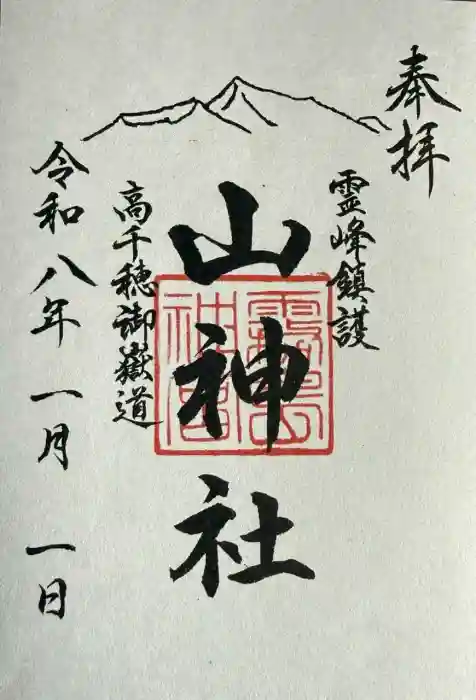 奉拝
霊峰鎮護
山神社
高千穂御嶽道
令和八年一月一日
霧島
神宮